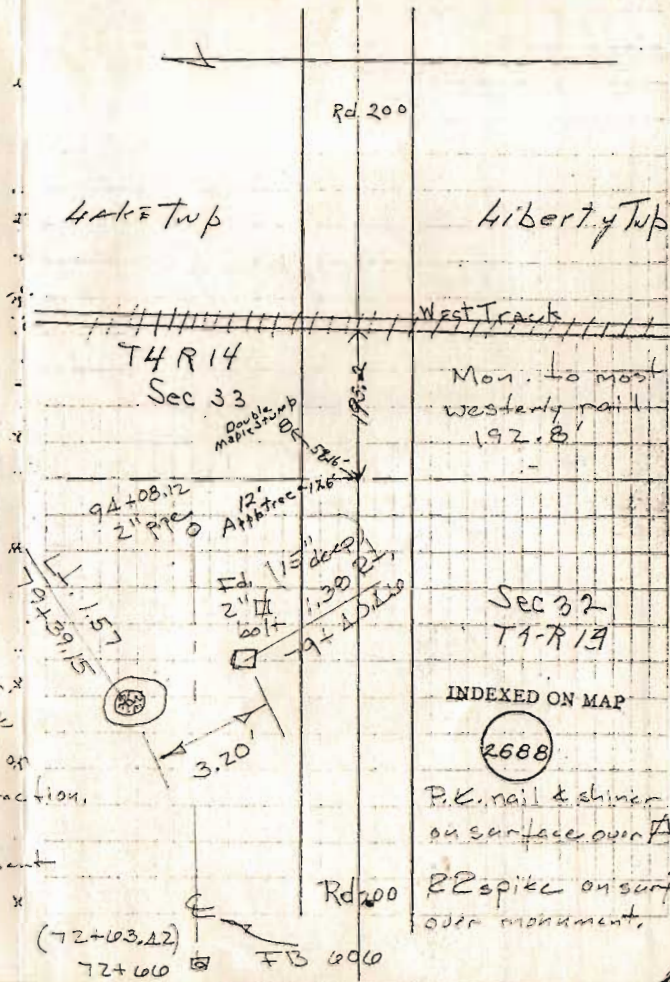 Rd. 200
Lake Twp
Liberty Twp
West Track
T4 R14
Sec 33
Double
Maple Stump
58.16'
Mon. to most
westerly rail
192.8'
94+08.12
2" pipe
12'
15" deep
Fd.
2"
bolt
1.38 Rt.
Lt. 1.57
79+39.15
3.20'
Sec 32
T4-R14
INDEXED ON MAP
2688
P.K. nail & shiner
on surface over
Rd 200
22 spike on surf
over monument.
(72+63.42)
72+66
FB 606